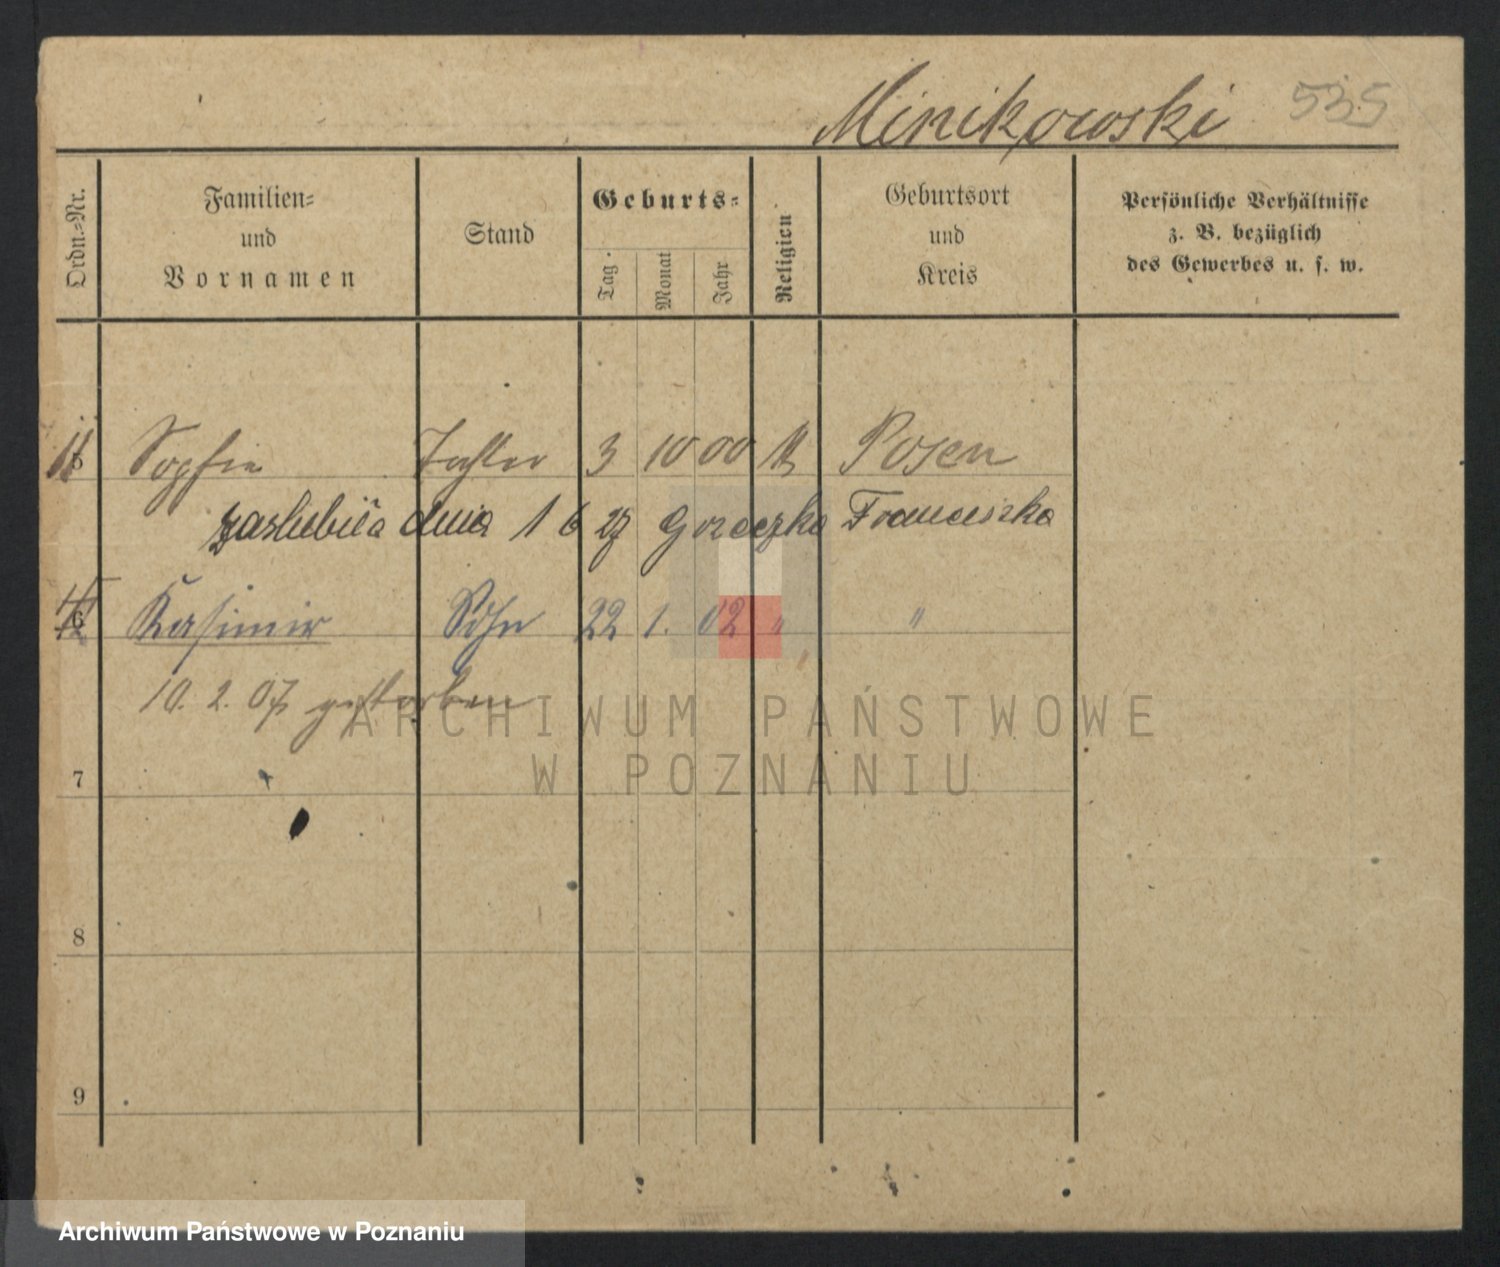 Minikowski 535
Ordn.-Nr. Familien- und Vornamen Stand Geburts- Tag. Monat Jahr Religion Geburtsort und Kreis Persönliche Verhältnisse z. B. bezüglich des Gewerbes u. s. w.
11 Sophie Tochter 3 10 00 K Posen
zaslubiła dnia 1 6 27 Goreczka Franciszka
6 Kasimir Sohn 22 1. 02 " "
10. 2. 07 gestorben
7
8
9
ARCHIWUM PAŃSTWOWE
W POZNANIU
Archiwum Państwowe w Poznaniu